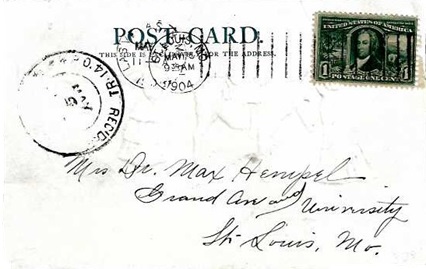 POST CARD.
THIS SIDE IS FOR THE ADDRESS.
ST. LOUIS, MO.
MAY 5
9 AM
1904
UNITED STATES OF AMERICA
1 POSTAGE ONE CENT 1
REC'D.
Mrs Dr. Max Hempel
Grand Ave and University
St. Louis, Mo.